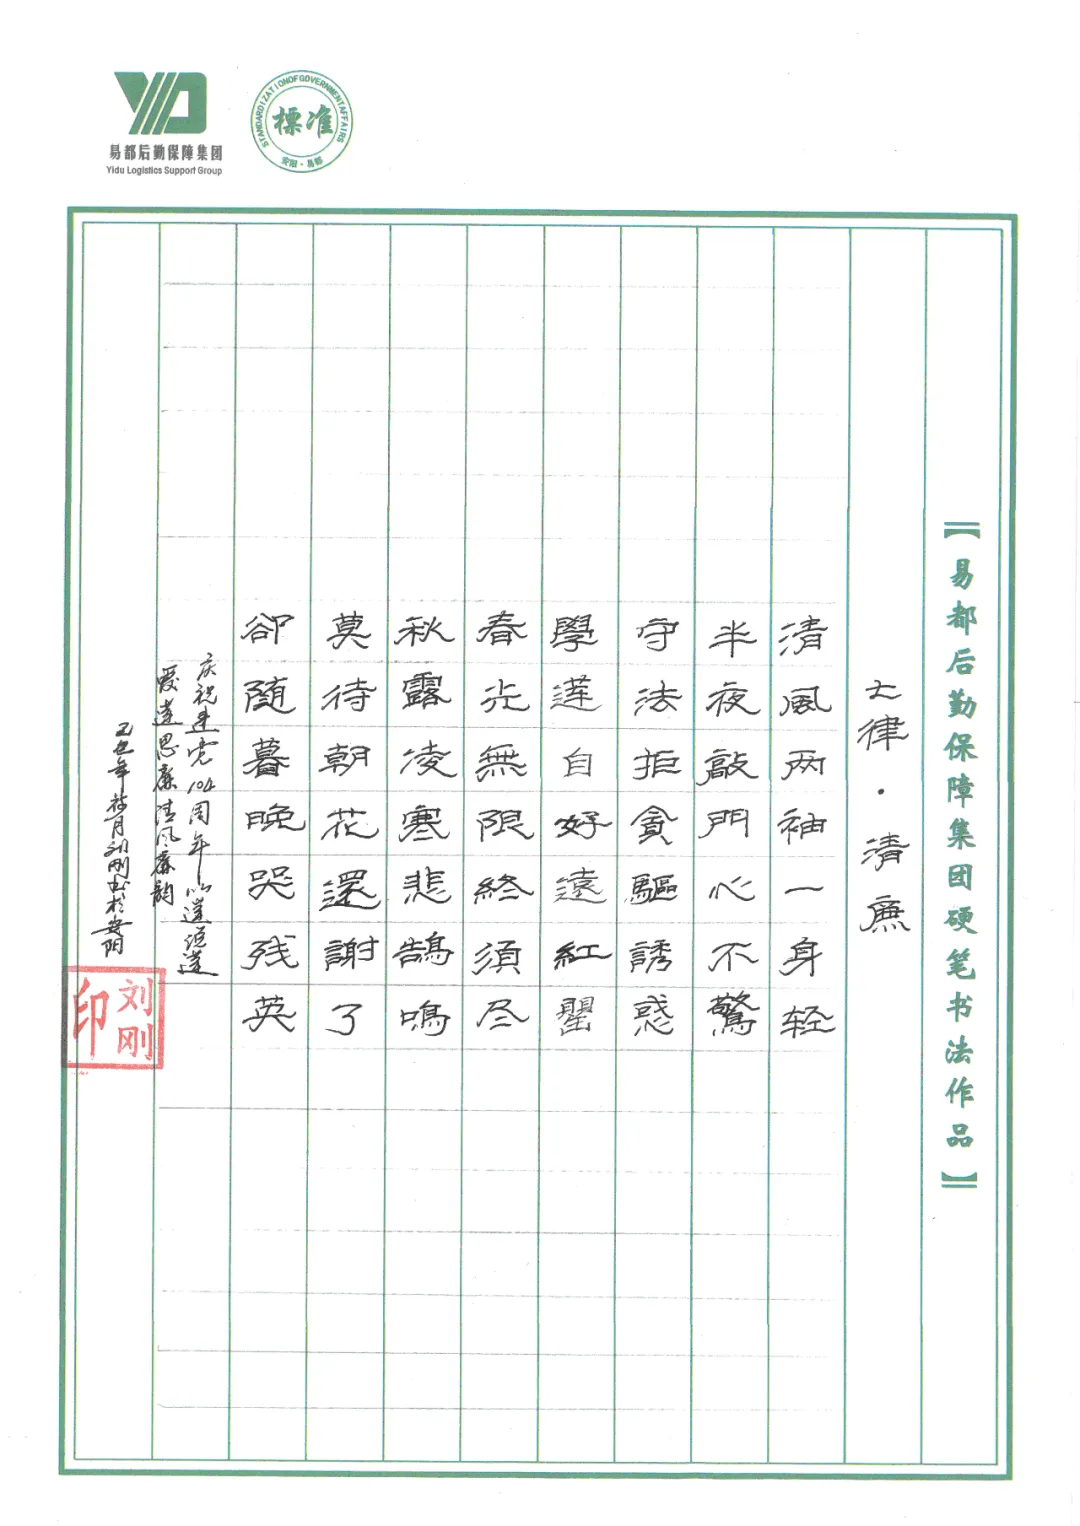 易都后勤保障集团
Yidu Logistics Support Group
STANDARDIZATION OF GOVERNMENT AFFAIRS
標准
安阳·易都
【易都后勤保障集团硬笔书法作品】
七律·清廉
清風两袖一身轻
半夜敲門心不驚
守法拒貪驅誘惑
學莲自好遠紅罌
春光無限終須尽
秋露凌寒悲鵠鳴
莫待朝花還謝了
卻随暮晚哭残英
庆祝建党104周年以莲说莲
爱莲思廉清风廉韵
乙巳年荷月刘刚书於安阳
刘刚印